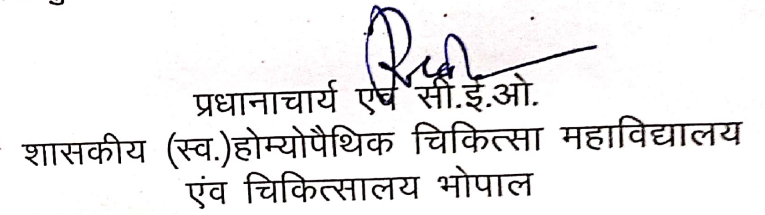 प्रधानाचार्य एवं सी.ई.ओ.
शासकीय (स्व.)होम्योपैथिक चिकित्सा महाविद्यालय
एंव चिकित्सालय भोपाल